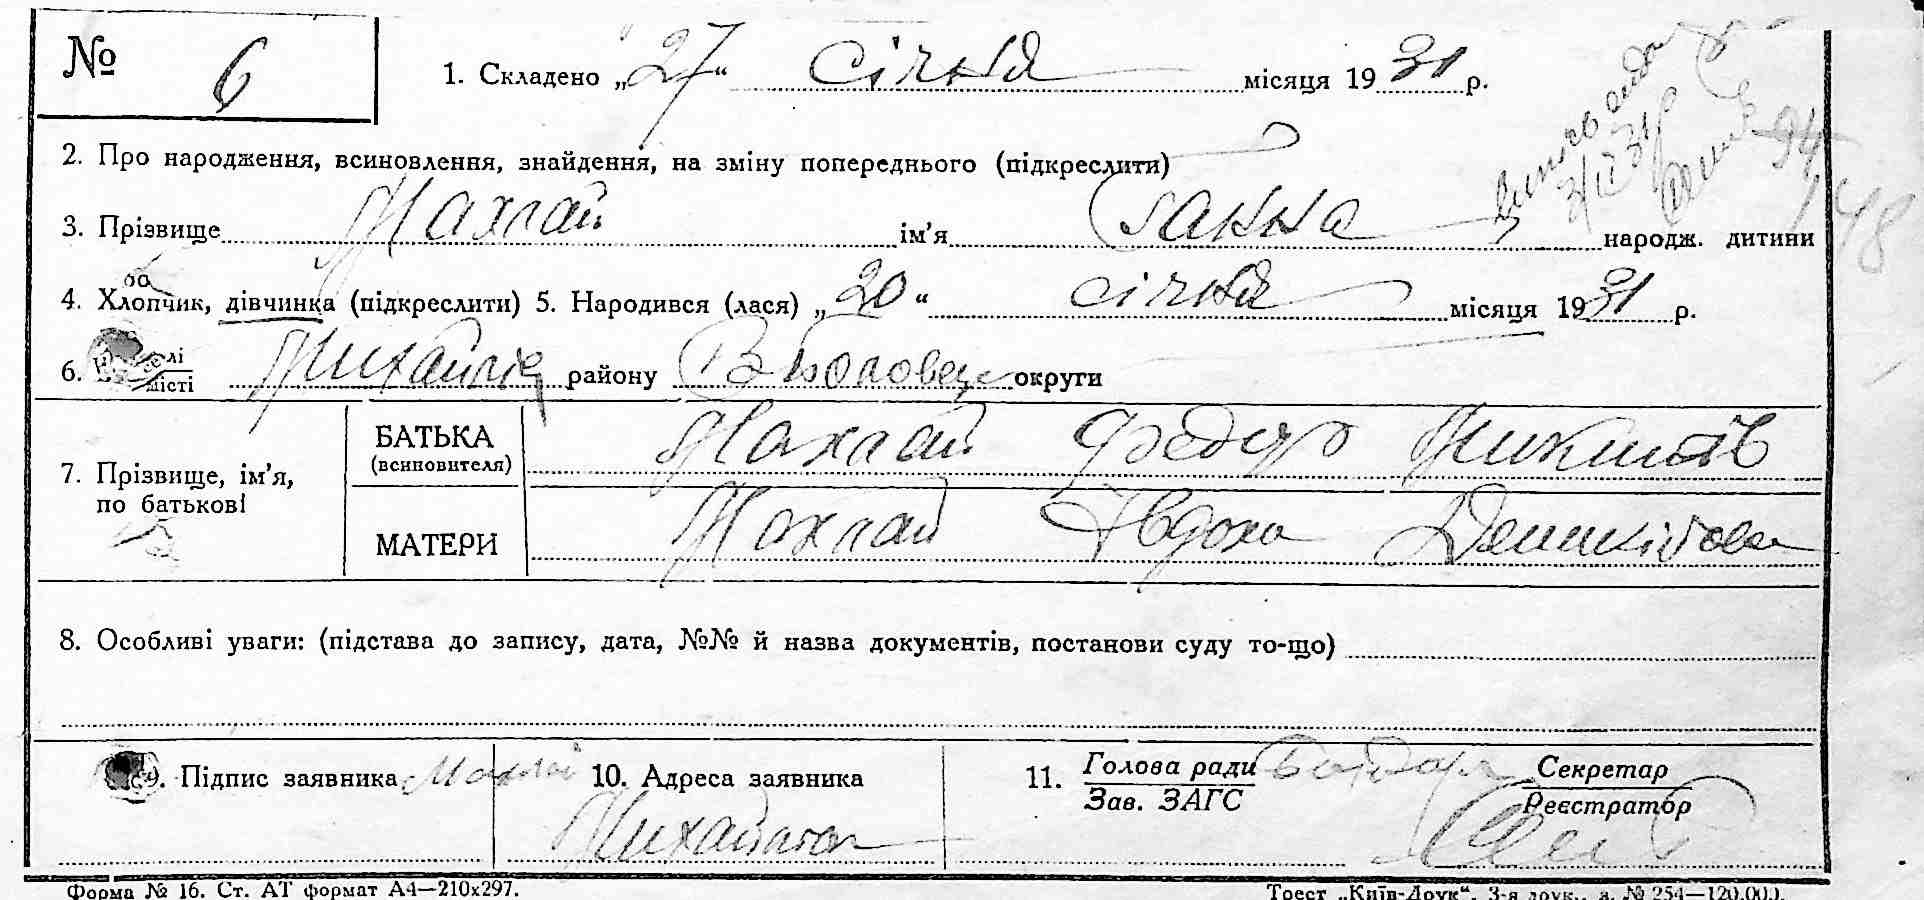 № 6
1. Складено „27“ січня місяця 1931 р.
2. Про народження, всиновлення, знайдення, на зміну попереднього (підкреслити)
3. Прізвище Махлай ім’я Ганна народж. дитини
4. Хлопчик, дівчинка (підкреслити) 5. Народився (лася) „20“ січня місяця 1931 р.
6. місті району округи
7. Прізвище, ім’я, по батькові
БАТЬКА (всиновителя) Махлай Федор Микитів
МАТЕРИ Махлай Явдоха
8. Особливі уваги: (підстава до запису, дата, №№ й назва документів, постанови суду то-що)
9. Підпис заявника Махлай
10. Адреса заявника
11. Голова ради
Зав. ЗАГС
Секретар
Реєстратор
Форма № 16. Ст. АТ формат А4—210х297.
Трест „Київ-Друк“. 3-я друк., з. № 254—120.000.
94
148